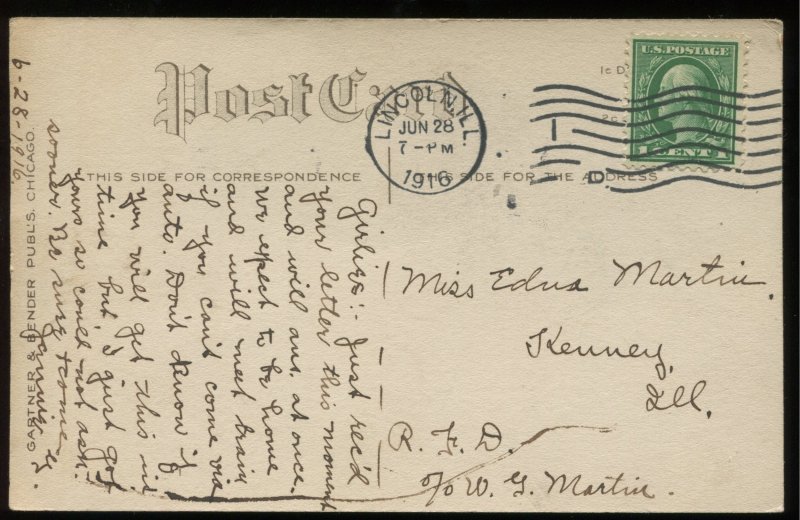 Post Card
THIS SIDE FOR CORRESPONDENCE
THIS SIDE FOR THE ADDRESS
LINCOLN, ILL.
JUN 28
7-PM
1916
U.S. POSTAGE
1 CENT 1
1c D
GARTNER & BENDER PUBL'S. CHICAGO.
6-28-1916.
Girlies:- Just rec'd
your letter this moment
and will ans. at once.
We expect to be home
and will meet train
if you can't come via
auto. Don't know if
you will get this in
time but I just got
yours so could not ask
sooner. Be sure & come
Miss Edna Martin.
Kenney,
Ill.
R. F. D.
c/o W. G. Martin.